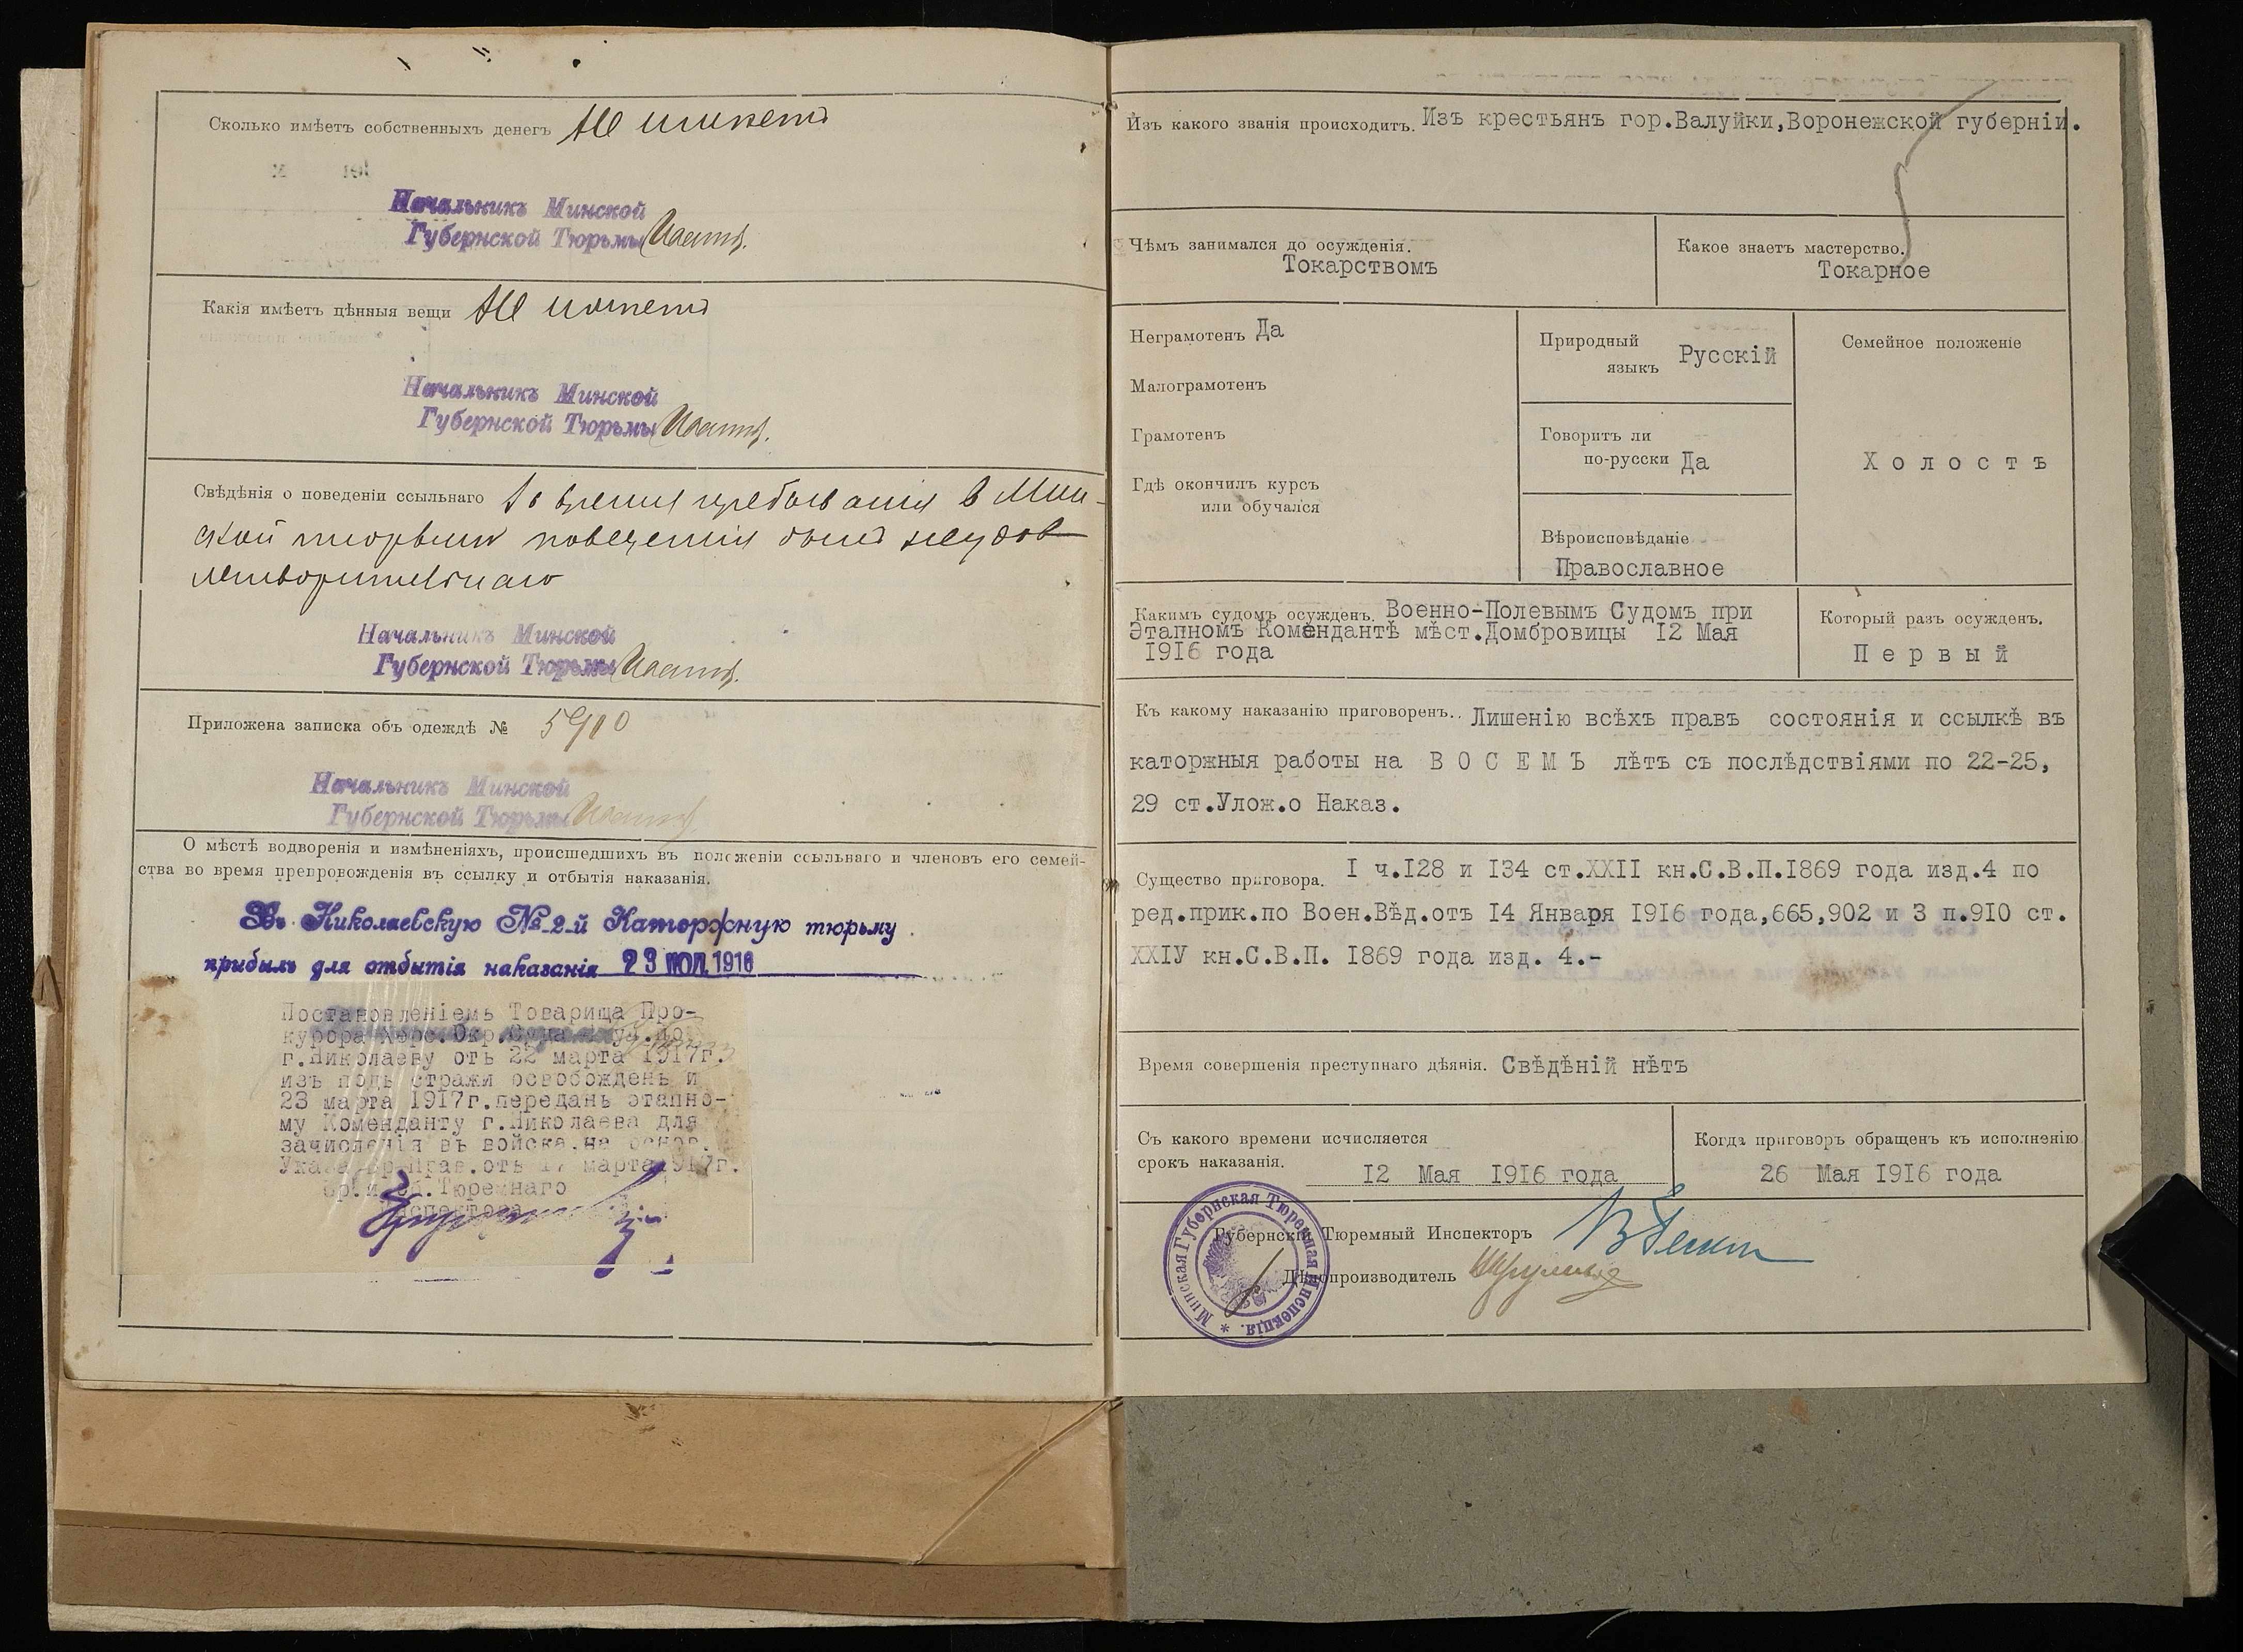 Сколько имѣетъ собственныхъ денегъ Не имѣетъ
Начальникъ Минской
Губернской Тюрьмы
Какія имѣетъ цѣнныя вещи Не имѣетъ
Начальникъ Минской
Губернской Тюрьмы
Свѣдѣнія о поведеніи ссыльнаго Во время пребыванія в Мин-
ской тюрьмѣ поведенія былъ неудов
летворительнаго
Начальникъ Минской
Губернской Тюрьмы
Приложена записка объ одеждѣ №
Начальникъ Минской
Губернской Тюрьмы
О мѣстѣ водворенія и измѣненіяхъ, происшедшихъ въ положеніи ссыльнаго и членовъ его семей-
ства во время препровожденія въ ссылку и отбытія наказанія.
Въ Николаевскую № 2-й Каторжную тюрьму
прибылъ для отбытія наказанія 23 ІЮЛ. 1916
Постановленіемъ Товарища Про-
курора Херс.Окр.Суда по
г.Николаеву отъ 22 марта 1917г.
изъ подъ стражи освобожденъ и
23 марта 1917г.переданъ этапно-
му Коменданту г.Николаева для
зачисленія въ войска,на основ.
Указа Вр.Прав.отъ 17 марта 1917г.
Тюремнаго
Инспектора
Изъ какого званія происходитъ. Изъ крестьянъ гор.Валуйки,Воронежской губерніи.
Чѣмъ занимался до осужденія.
Токарствомъ
Какое знаетъ мастерство.
Токарное
Неграмотенъ Да
Малограмотенъ
Грамотенъ
Гдѣ окончилъ курсъ
или обучался
Природный
языкъ Русскій
Говоритъ ли
по-русски Да
Вѣроисповѣданіе
Православное
Семейное положеніе
Х о л о с т ъ
Какимъ судомъ осужденъ. Военно-Полевымъ Судомъ при
Этапномъ Комендантѣ мѣст.Домбровицы 12 Мая
1916 года
Который разъ осужденъ.
П е р в ы й
Къ какому наказанію приговоренъ.. Лишенію всѣхъ правъ состоянія и ссылкѣ въ
каторжныя работы на В О С Е М Ь лѣтъ съ послѣдствіями по 22-25,
29 ст.Улож.о Наказ.
Существо приговора. I ч.I28 и I34 ст.XXII кн.С.В.П.I869 года изд.4 по
ред.прик.по Воен.Вѣд.отъ I4 Января I9I6 года,665,902 и 3 п.9I0 ст.
XXIУ кн.С.В.П. I869 года изд. 4.-
Время совершенія преступнаго дѣянія. Свѣдѣній нѣтъ
Съ какого времени исчисляется
срокъ наказанія.
I2 Мая I9I6 года
Когда приговоръ обращенъ къ исполненію
26 Мая I9I6 года
Губернскій Тюремный Инспекторъ
Дѣлопроизводитель
Минская Губернская Тюремная Инспекція.